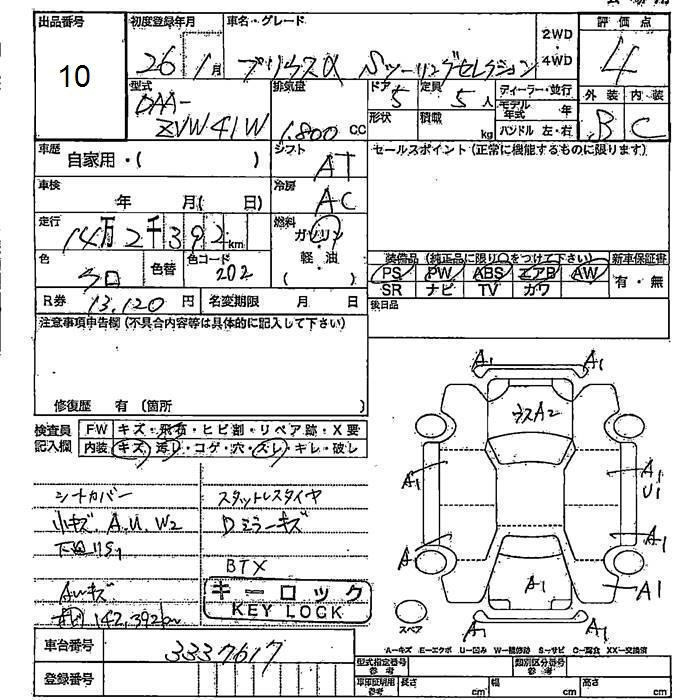 出品番号 初度登録年月 車名・グレード 2WD・4WD 評価点
10 26年1月 プリウスα Sツーリングセレクション 4
型式 排気量 ドア 定員 ディーラー・並行 外装 内装
DAA-ZVW41W 1.800cc 5 5人 モデル年式 年 B C
形状 積載 kg ハンドル 左・右
車歴 自家用・( ) シフト AT セールスポイント(正常に機能するものに限ります)
車検 年 月( 日) 冷房 AC
走行 14万2千392km 燃料 ガソリン・軽・油 ( )
色 クロ 色替 色コード 202
装備品(純正品に限り○をつけて下さい) 新車保証書
PS PW ABS エアB AW 有・無
SR ナビ TV カワ
R券 13,120円 名変期限 月 日 後日品
注意事項申告欄(不具合内容等は具体的に記入して下さい)
修復歴 有(箇所 )
検査員記入欄 FW キズ・飛石・ヒビ割・リペア跡・X要
内装 キズ・汚レ・コゲ・穴・スレ・キレ・破レ
シートカバー スタットレスタイヤ
小キズ.A.U.W2 Dミラーキズ
BTX
AWキズ
142,392km
キーロック
KEY LOCK
A1 A1
A2
A1 A1
U1
A A1
A1 A1
A1 A1
スペア
A-キズ E-エクボ U-凹み W-補修跡 S-サビ C-腐食 XX-交換済
車台番号 3337617
型式指定番号 参考 類別区分番号 参考
登録番号
車庫証明用 参考 長さ cm 幅 cm 高さ cm